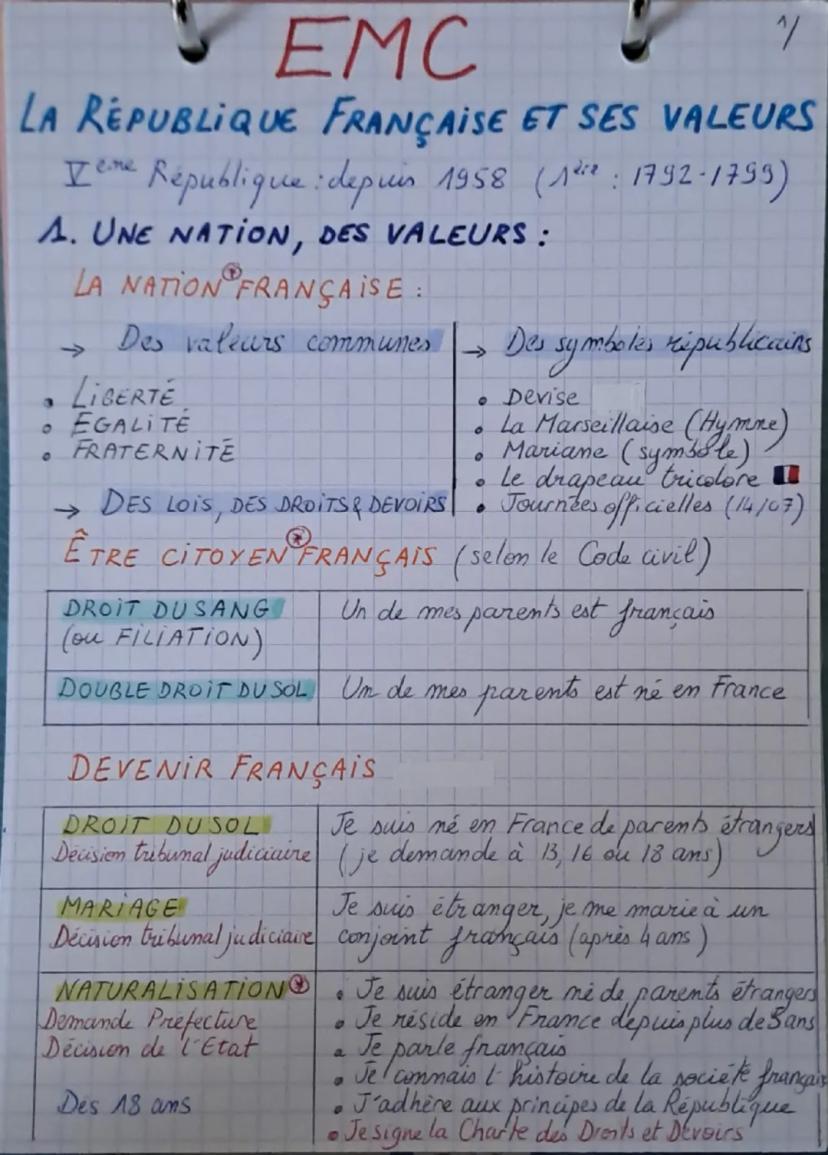 EMC
1/
LA RÉPUBLIQUE FRANÇAISE ET SES VALEURS
Vème République : depuis 1958 (1ère : 1792-1799)
1. UNE NATION, DES VALEURS :
LA NATION* FRANÇAISE :
→ Des valeurs communes
• LIBERTÉ
• ÉGALITÉ
• FRATERNITÉ
→ DES LOIS, DES DROITS & DEVOIRS
→ Des symboles républicains
• Devise
• La Marseillaise (Hymne)
• Mariane (symbole)
• Le drapeau tricolore 🇫🇷
• Journées officielles (14/07)
ÊTRE CITOYEN* FRANÇAIS (selon le Code civil)
DROIT DU SANG
(ou FILIATION)
Un de mes parents est français
DOUBLE DROIT DU SOL
Un de mes parents est né en France
DEVENIR FRANÇAIS
DROIT DU SOL
Décision tribunal judiciaire
Je suis né en France de parents étrangers
(je demande à 13, 16 ou 18 ans)
MARIAGE
Décision tribunal judiciaire
Je suis étranger, je me marie à un
conjoint français (après 4 ans)
NATURALISATION*
Demande Préfecture
Décision de l'Etat
Dès 18 ans
• Je suis étranger né de parents étrangers
• Je réside en France depuis plus de 5 ans
• Je parle français
• Je connais l'histoire de la société français
• J'adhère aux principes de la République
• Je signe la Charte des Droits et Devoirs